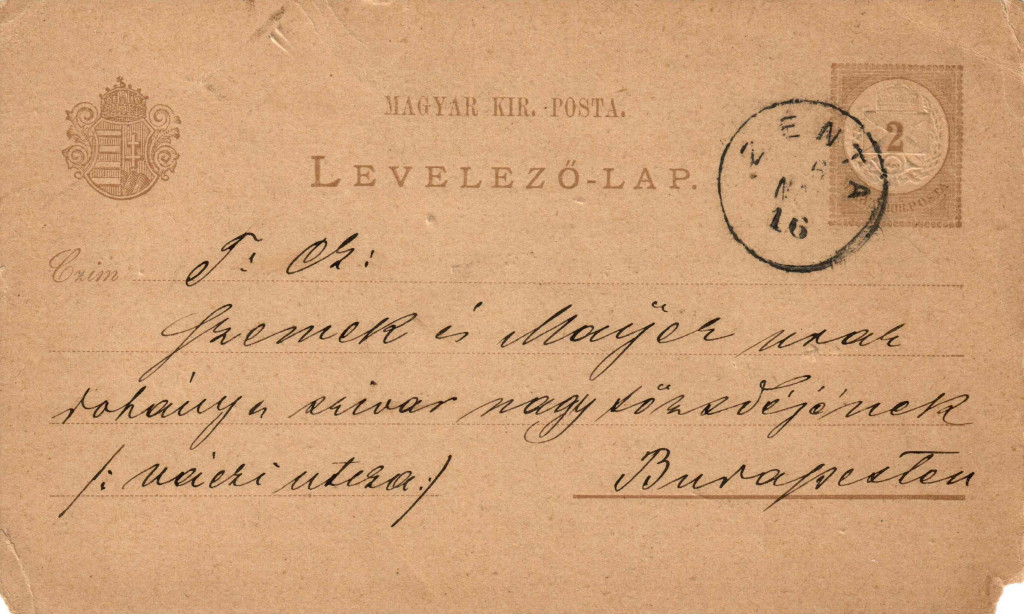 MAGYAR KIR. POSTA.
LEVELEZŐ-LAP.
2
ZENTA
16
Czim T: Cz:
Szemek és Mayer urak
dohány és szivar nagy tőzsdéjének
/: váczi utcza :/
Budapesten